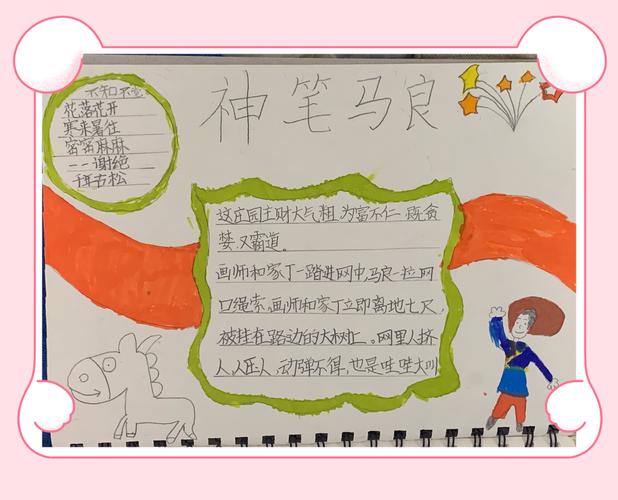 神笔马良
不知不觉
花落花开
寒来暑往
密密麻麻
一一谢绝
千年古松
这庄园主财大气粗,为富不仁,既贪
婪又霸道。
画师和家丁一踏进网中,马良一拉网
口绳索,画师和家丁立即离地七尺,
被挂在路边的大树上。网里人挤
人,人压人,动弹不得,也是哇哇大叫